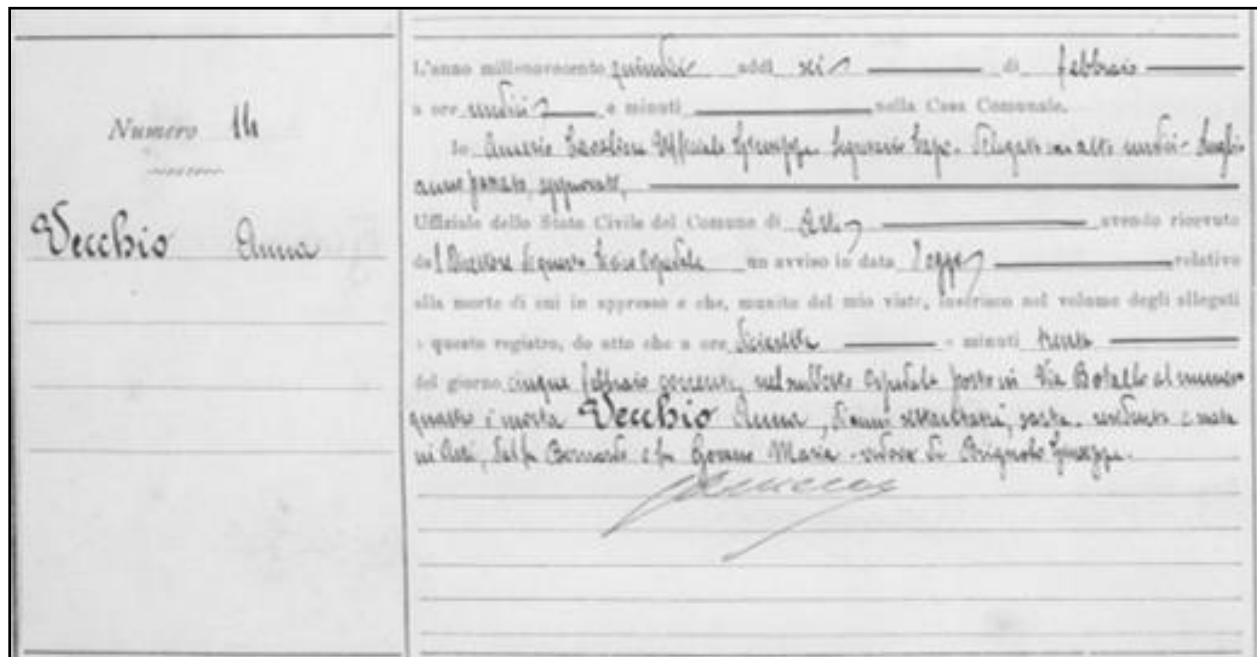 Numero 14
Vecchio Anna
L'anno millenovecento quindici addì sei di febbraio
a ore undici e minuti nella Casa Comunale.
Io Amerio Cavaliere Ufficiale Giuseppe Segretario Capo. Delegato con atto undici Luglio
anno passato, approvato,
Uffiziale dello Stato Civile del Comune di Asti avendo ricevuto
dal Direttore Ospedale un avviso in data d'oggi relativo
alla morte di cui in appresso e che, munito del mio visto, inserisco nel volume degli allegati
a questo registro, do atto che a ore diciassette e minuti trenta
del giorno cinque febbraio corrente, nel suddetto Ospedale posto in Via Botallo al numero
quattro è morta Vecchio Anna, d'anni, sarta, residente e nata
in Asti, dal fu Bernardo e fu Maria vedova di Brignolo Giuseppe.